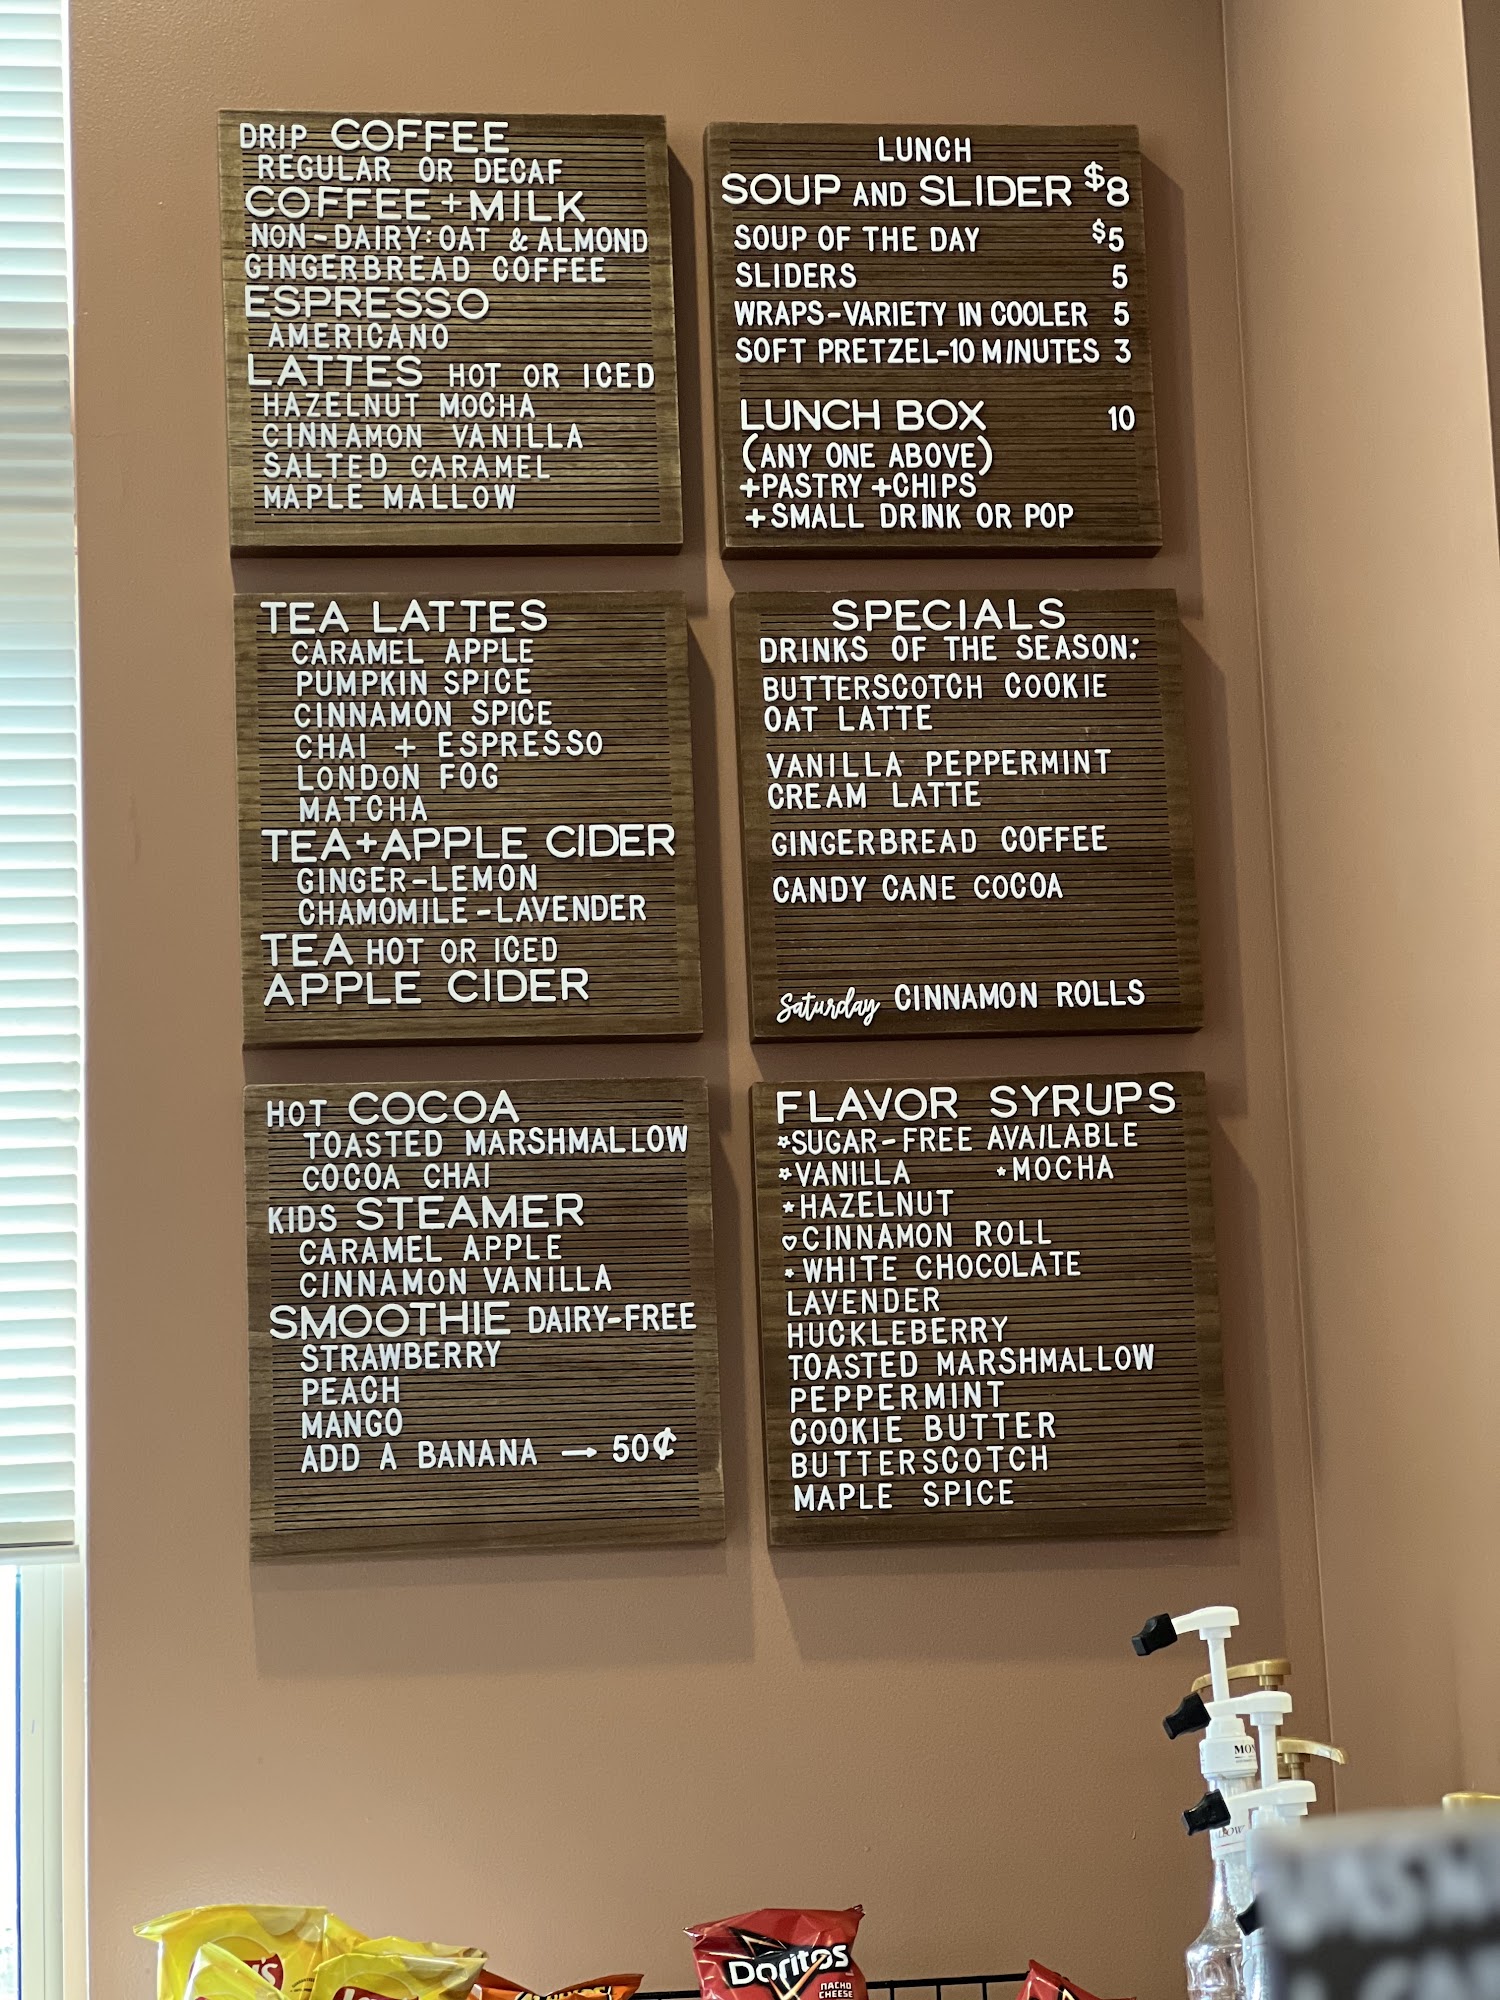 DRIP COFFEE
REGULAR OR DECAF
COFFEE + MILK
NON-DAIRY: OAT & ALMOND
GINGERBREAD COFFEE
ESPRESSO
AMERICANO
LATTES HOT OR ICED
HAZELNUT MOCHA
CINNAMON VANILLA
SALTED CARAMEL
MAPLE MALLOW
LUNCH
SOUP AND SLIDER $8
SOUP OF THE DAY $5
SLIDERS 5
WRAPS-VARIETY IN COOLER 5
SOFT PRETZEL-10 MINUTES 3
LUNCH BOX 10
(ANY ONE ABOVE)
+PASTRY +CHIPS
+SMALL DRINK OR POP
TEA LATTES
CARAMEL APPLE
PUMPKIN SPICE
CINNAMON SPICE
CHAI + ESPRESSO
LONDON FOG
MATCHA
TEA+APPLE CIDER
GINGER-LEMON
CHAMOMILE-LAVENDER
TEA HOT OR ICED
APPLE CIDER
SPECIALS
DRINKS OF THE SEASON:
BUTTERSCOTCH COOKIE
OAT LATTE
VANILLA PEPPERMINT
CREAM LATTE
GINGERBREAD COFFEE
CANDY CANE COCOA
Saturday CINNAMON ROLLS
HOT COCOA
TOASTED MARSHMALLOW
COCOA CHAI
KIDS STEAMER
CARAMEL APPLE
CINNAMON VANILLA
SMOOTHIE DAIRY-FREE
STRAWBERRY
PEACH
MANGO
ADD A BANANA → 50¢
FLAVOR SYRUPS
*SUGAR-FREE AVAILABLE
*VANILLA *MOCHA
*HAZELNUT
♡CINNAMON ROLL
*WHITE CHOCOLATE
LAVENDER
HUCKLEBERRY
TOASTED MARSHMALLOW
PEPPERMINT
COOKIE BUTTER
BUTTERSCOTCH
MAPLE SPICE
Doritos
NACHO
CHEESE